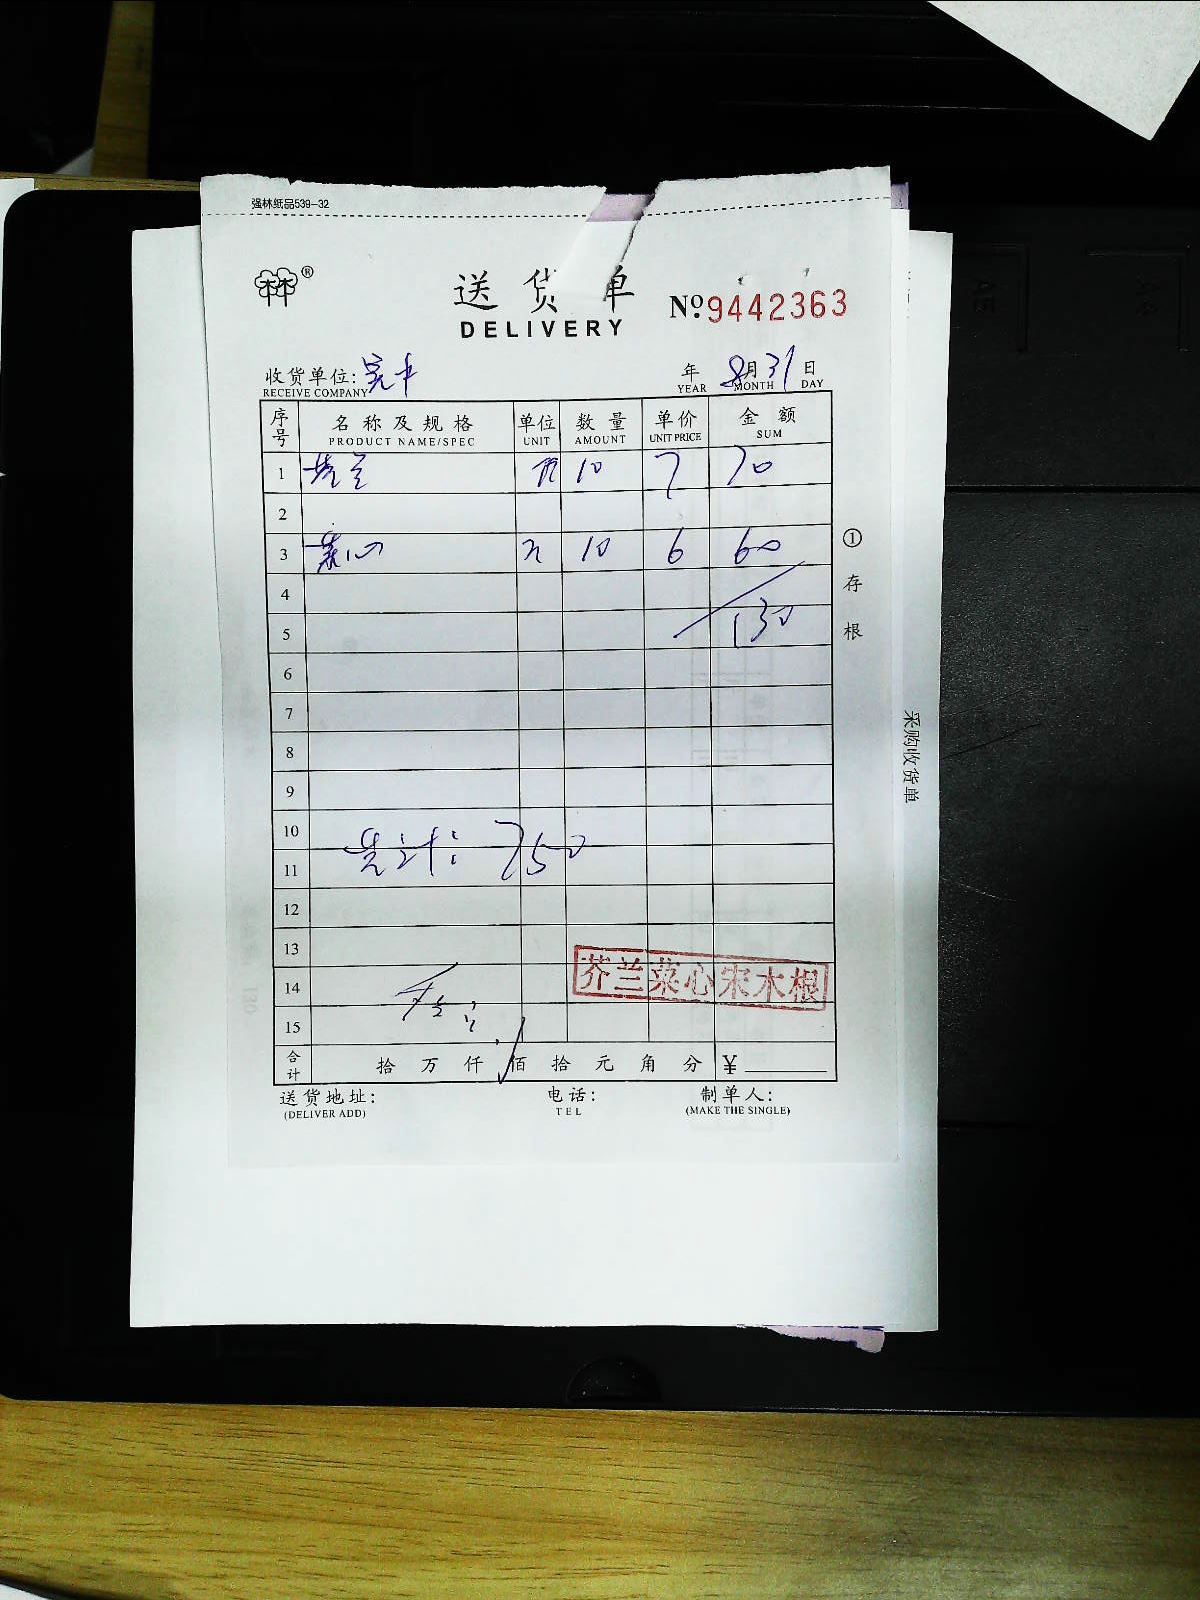 强林纸品539-32
林®
送货单
DELIVERY
№9442363
收货单位:
RECEIVE COMPANY
年 8月31日
YEAR MONTH DAY
序号 名称及规格 单位 数量 单价 金额
PRODUCT NAME/SPEC UNIT AMOUNT UNIT PRICE SUM
1 芥兰 斤 10 7 70
2
3 菜心 斤 10 6 60
4
5 130
6
7
8
9
10
共计: 750
11
12
13
芥兰菜心宋木根
14
15
合计 拾万仟佰拾元角分 ¥
送货地址: 电话: 制单人:
(DELIVER ADD) TEL (MAKE THE SINGLE)
①存根
采购收货单